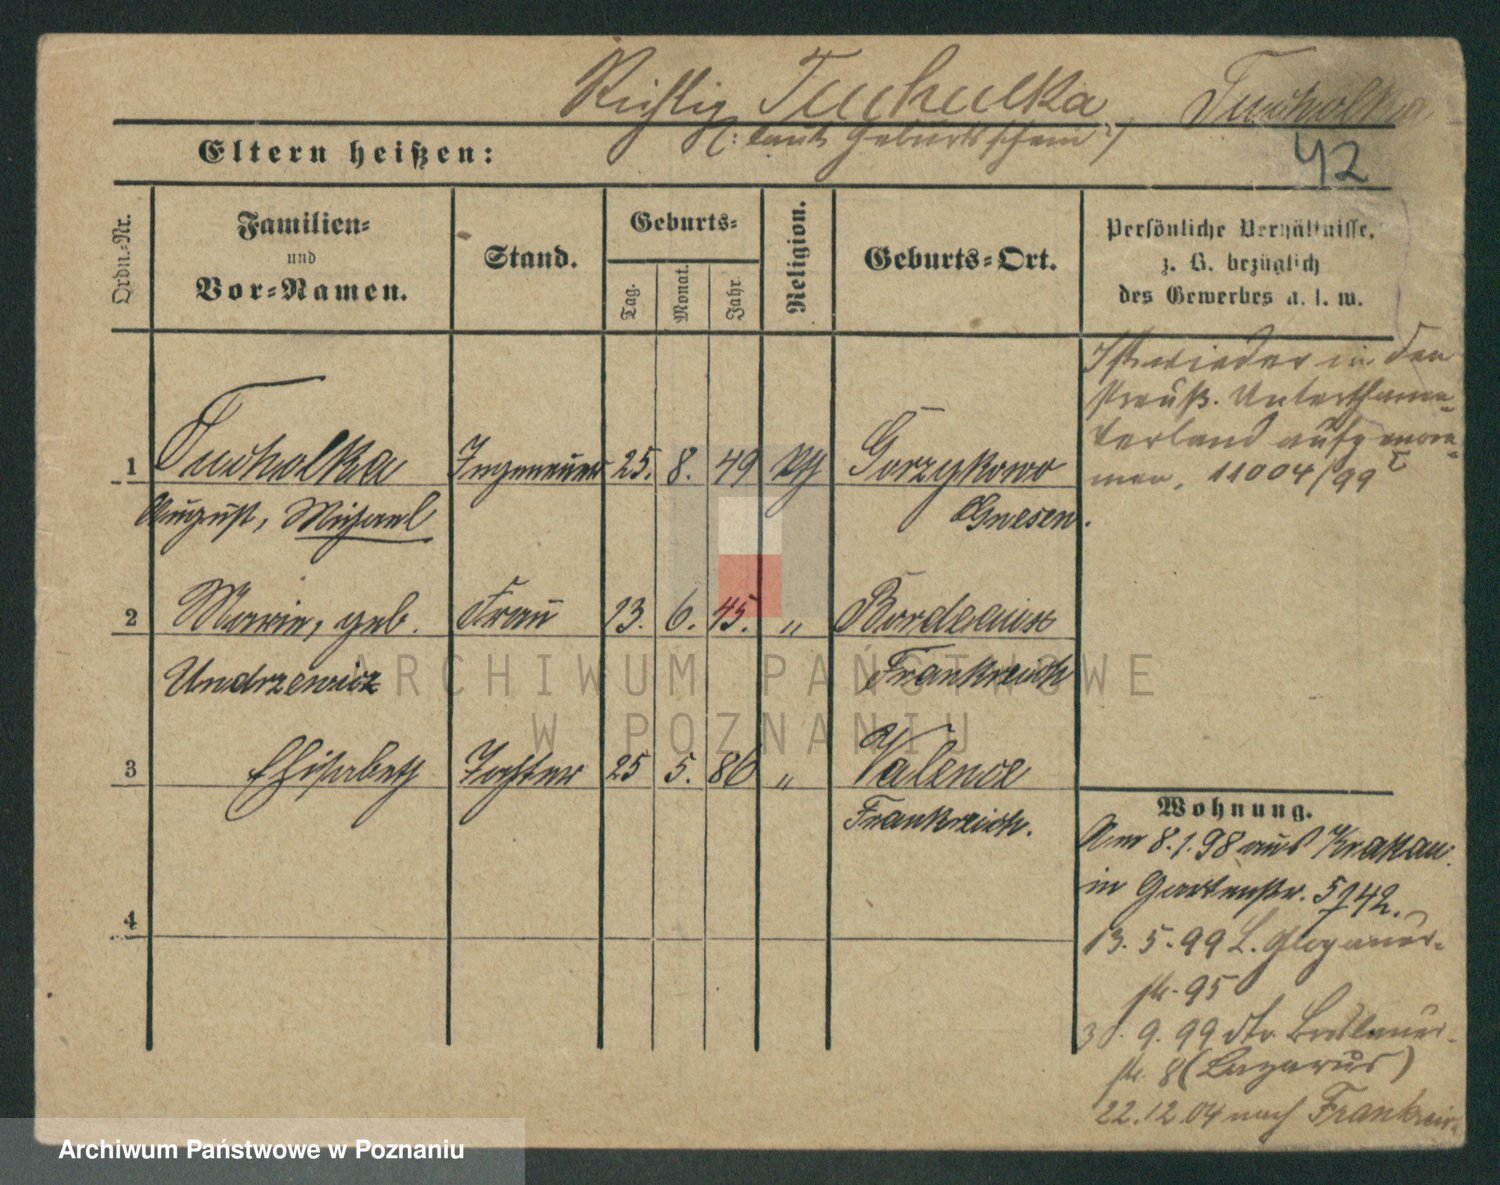 Richtig Tuchulka Tucholka
(: laut Geburtsschein :)
42
Eltern heißen:
Ordn.-Nr.
Familien-
und
Vor-Namen.
Stand.
Geburts-
Tag.
Monat.
Jahr.
Religion.
Geburts-Ort.
Persönliche Verhältnisse,
z. B. bezüglich
des Gewerbes u. s. w.
Ist wieder in den
Preuß. Unterthanen-
verband aufgenom-
men, 11004/99
1 Tucholka Ingenieur 25. 8. 49 kth Gorzykowo
August, Michael Gnesen.
2 Marie, geb. Frau 13. 6. 45. " Bordeaux
Undrzewicz Frankreich
3 Elisabeth Tochter 25 5. 86 " Valence
Frankreich.
4
Wohnung.
Am 8.1.98 aus Krakau
in Gartenstr. 5
13.5.99 L. Glogauer-
str. 95
30.9.99 dto Breslauer-
str. 8 (Lazarus)
22.12.04 nach Frankreich
ARCHIWUM PAŃSTWOWE
W POZNANIU
Archiwum Państwowe w Poznaniu